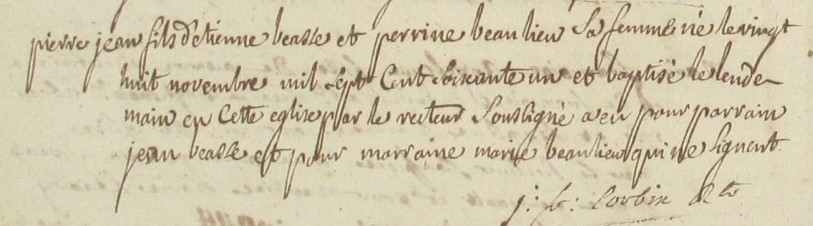 pierre jean fils d'etienne beasse et perrine beaulieu sa femme né le vingt
huit novembre mil sept cent soixante un et baptisé le lende
main en cette eglise par le recteur soussigné a eu pour parrain
jean beasse et pour marraine marie beaulieu qui ne signent
j: f: Corbin